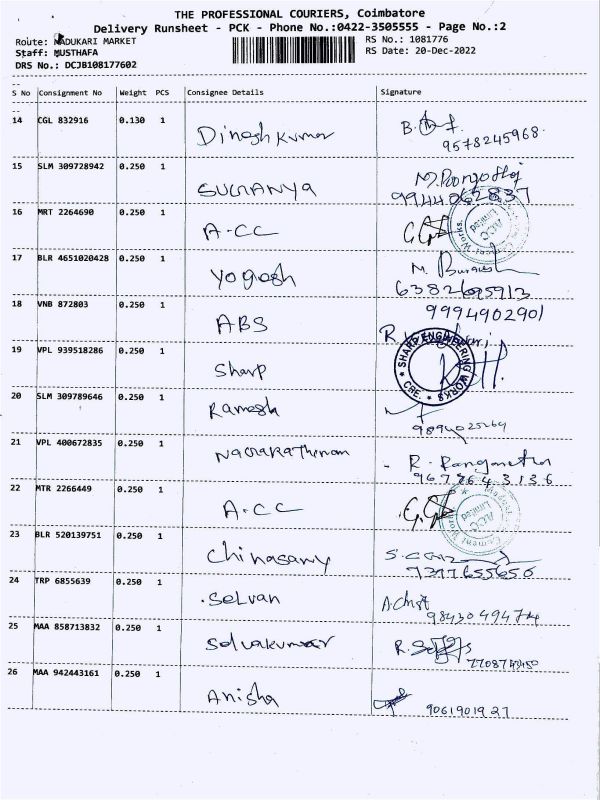 THE PROFESSIONAL COURIERS, Coimbatore
Delivery Runsheet - PCK - Phone No.:0422-3505555 - Page No.:2
Route: MADUKARI MARKET
RS No.: 1081776
Staff: MUSTHAFA
RS Date: 20-Dec-2022
DRS No.: DCJB108177602
S No Consignment No Weight PCS Consignee Details Signature
14 CGL 832916 0.130 1 Dineshkumar B.
9578245968
15 SLM 309728942 0.250 1 SUGANYA
9944062837
16 MRT 2264690 0.250 1 A.CC
Cement Works. ACC Limited
17 BLR 4651020428 0.250 1 Yogesh M.
6382695913
18 VNB 872803 0.250 1 ABS 9994902901
R.
19 VPL 939518286 0.250 1 Sharp
SHARP ENGINEERING WORKS * CBE. *
20 SLM 309789646 0.250 1 Ramesh
9894025264
21 VPL 400672835 0.250 1 Nagarathinam R. Ranganathan
9677643136
22 MTR 2266449 0.250 1 A.CC
Cement Works ACC Limited
23 BLR 520139751 0.250 1 Chinasamy
7397655656
24 TRP 6855639 0.250 1 Selvan
9843049474
25 MAA 858713832 0.250 1 Selvakumar R.
26 MAA 942443161 0.250 1 Anisha
9061901927